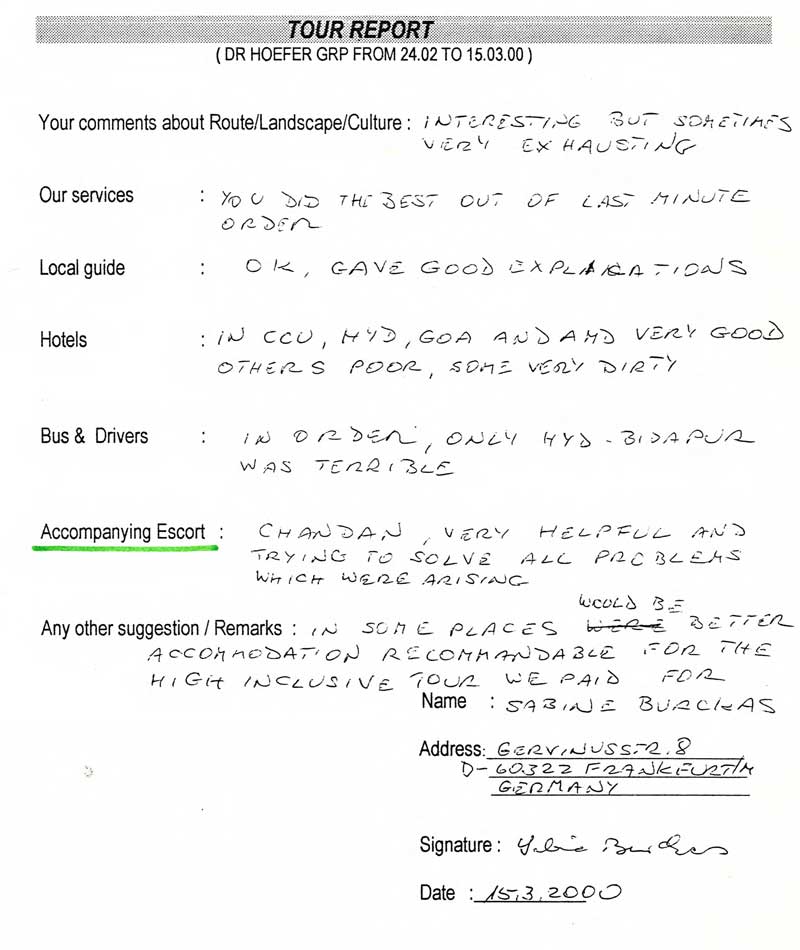 TOUR REPORT
( DR HOEFER GRP FROM 24.02 TO 15.03.00 )
Your comments about Route/Landscape/Culture : INTERESTING BUT SOMETIMES
VERY EXHAUSTING
Our services : YOU DID THE BEST OUT OF LAST MINUTE
ORDER
Local guide : OK, GAVE GOOD EXPLANATIONS
Hotels : IN CCU, HYD, GOA AND AMD VERY GOOD
OTHERS POOR, SOME VERY DIRTY
Bus & Drivers : IN ORDER, ONLY HYD - BIDAPUR
WAS TERRIBLE
Accompanying Escort : CHANDAN, VERY HELPFUL AND
TRYING TO SOLVE ALL PROBLEMS
WHICH WERE ARISING
WOULD BE
Any other suggestion / Remarks : IN SOME PLACES WERE BETTER
ACCOMMODATION RECOMMANDABLE FOR THE
HIGH INCLUSIVE TOUR WE PAID FOR
Name : SABINE BURCKAS
Address: GERVINUSSTR. 8
D-60322 FRANKFURT/M
GERMANY
Signature : Sabine Burckas
Date : 15.3.2000